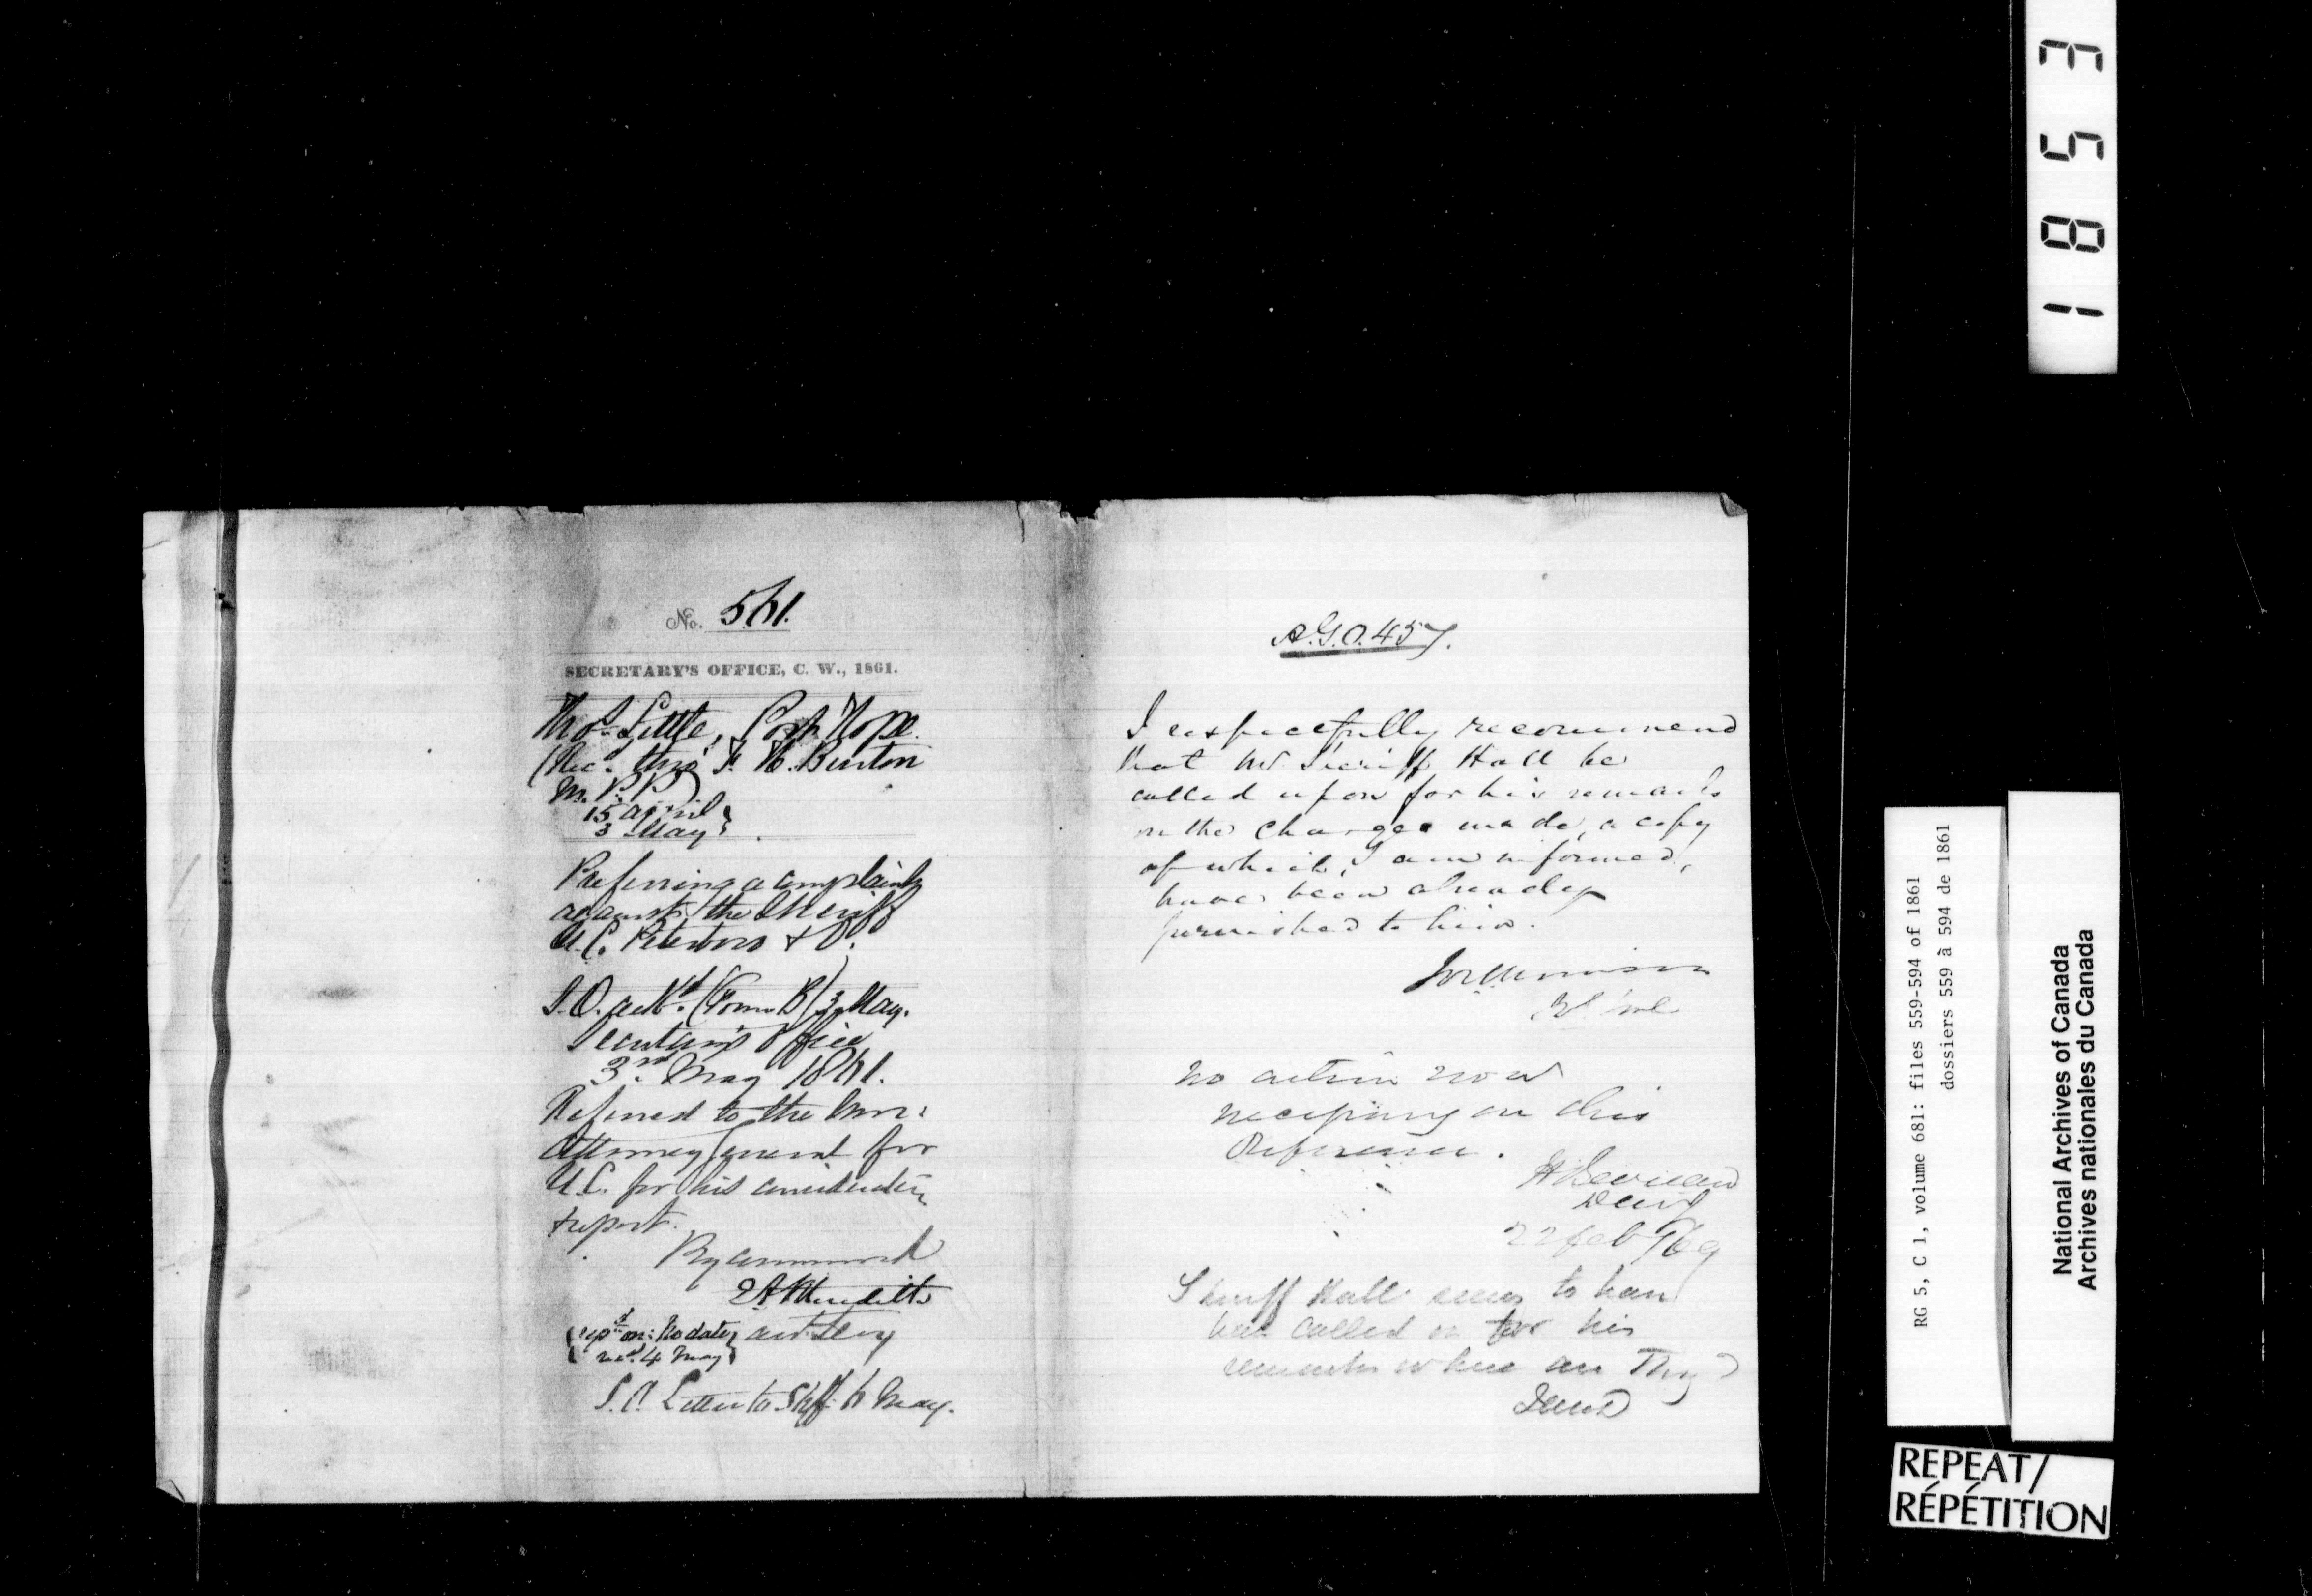 No. 561.
SECRETARY'S OFFICE, C. W., 1861.
Thos. Little, Port Hope.
(Recd. thro' F. H. Burton
M. P. P.)
15 April
3 May
Preferring a complaint
against the Sheriff
U.C. Peterboro & Co.
S.O. ackd. (Form B) 3 May.
Secretary's Office
3rd. May 1861.
Referred to the Hon:
Attorney General for
U.C. for his consideration
& report.
By command
E A Meredith
Asst. Secy
repd. on: No date
recd. 4 May
S.O. Letter to Shff. 6 May.
A.G.O. 457.
I respectfully recommend
that Mr Sheriff Hall be
called upon for his remarks
on the charges made, a copy
of which, I am informed,
have been already
furnished to him.
No action now
necessary on this
Reference.
H Bernard
22 Feb /69
Sheriff Hall seems to have
been called on for his
remarks where are They?
1853
RG 5, C 1, volume 681: files 559-594 of 1861
dossiers 559 à 594 de 1861
National Archives of Canada
Archives nationales du Canada
REPEAT/
RÉPÉTITION